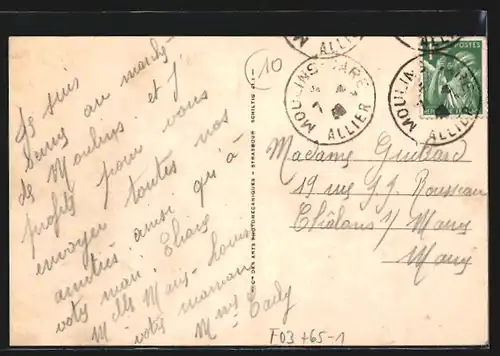 Je suis
venue au marché
de Moulins et j'
profite pour vous
envoyer toutes nos
amitiés ainsi qu'à
votre mari
Melle Marie-Louise
votre maman
Mme
10
MOULINS GARE
ALLIER
MOULINS GARE
ALLIER
ALLIER
ALLIER
POSTES
Madame Guibard
19 rue J.J. Rousseau
Châlons s/ Marne
Marne
DES ARTS PHOTOMÉCANIQUES - STRASBOURG SCHILTIGHEIM
F03+65-1